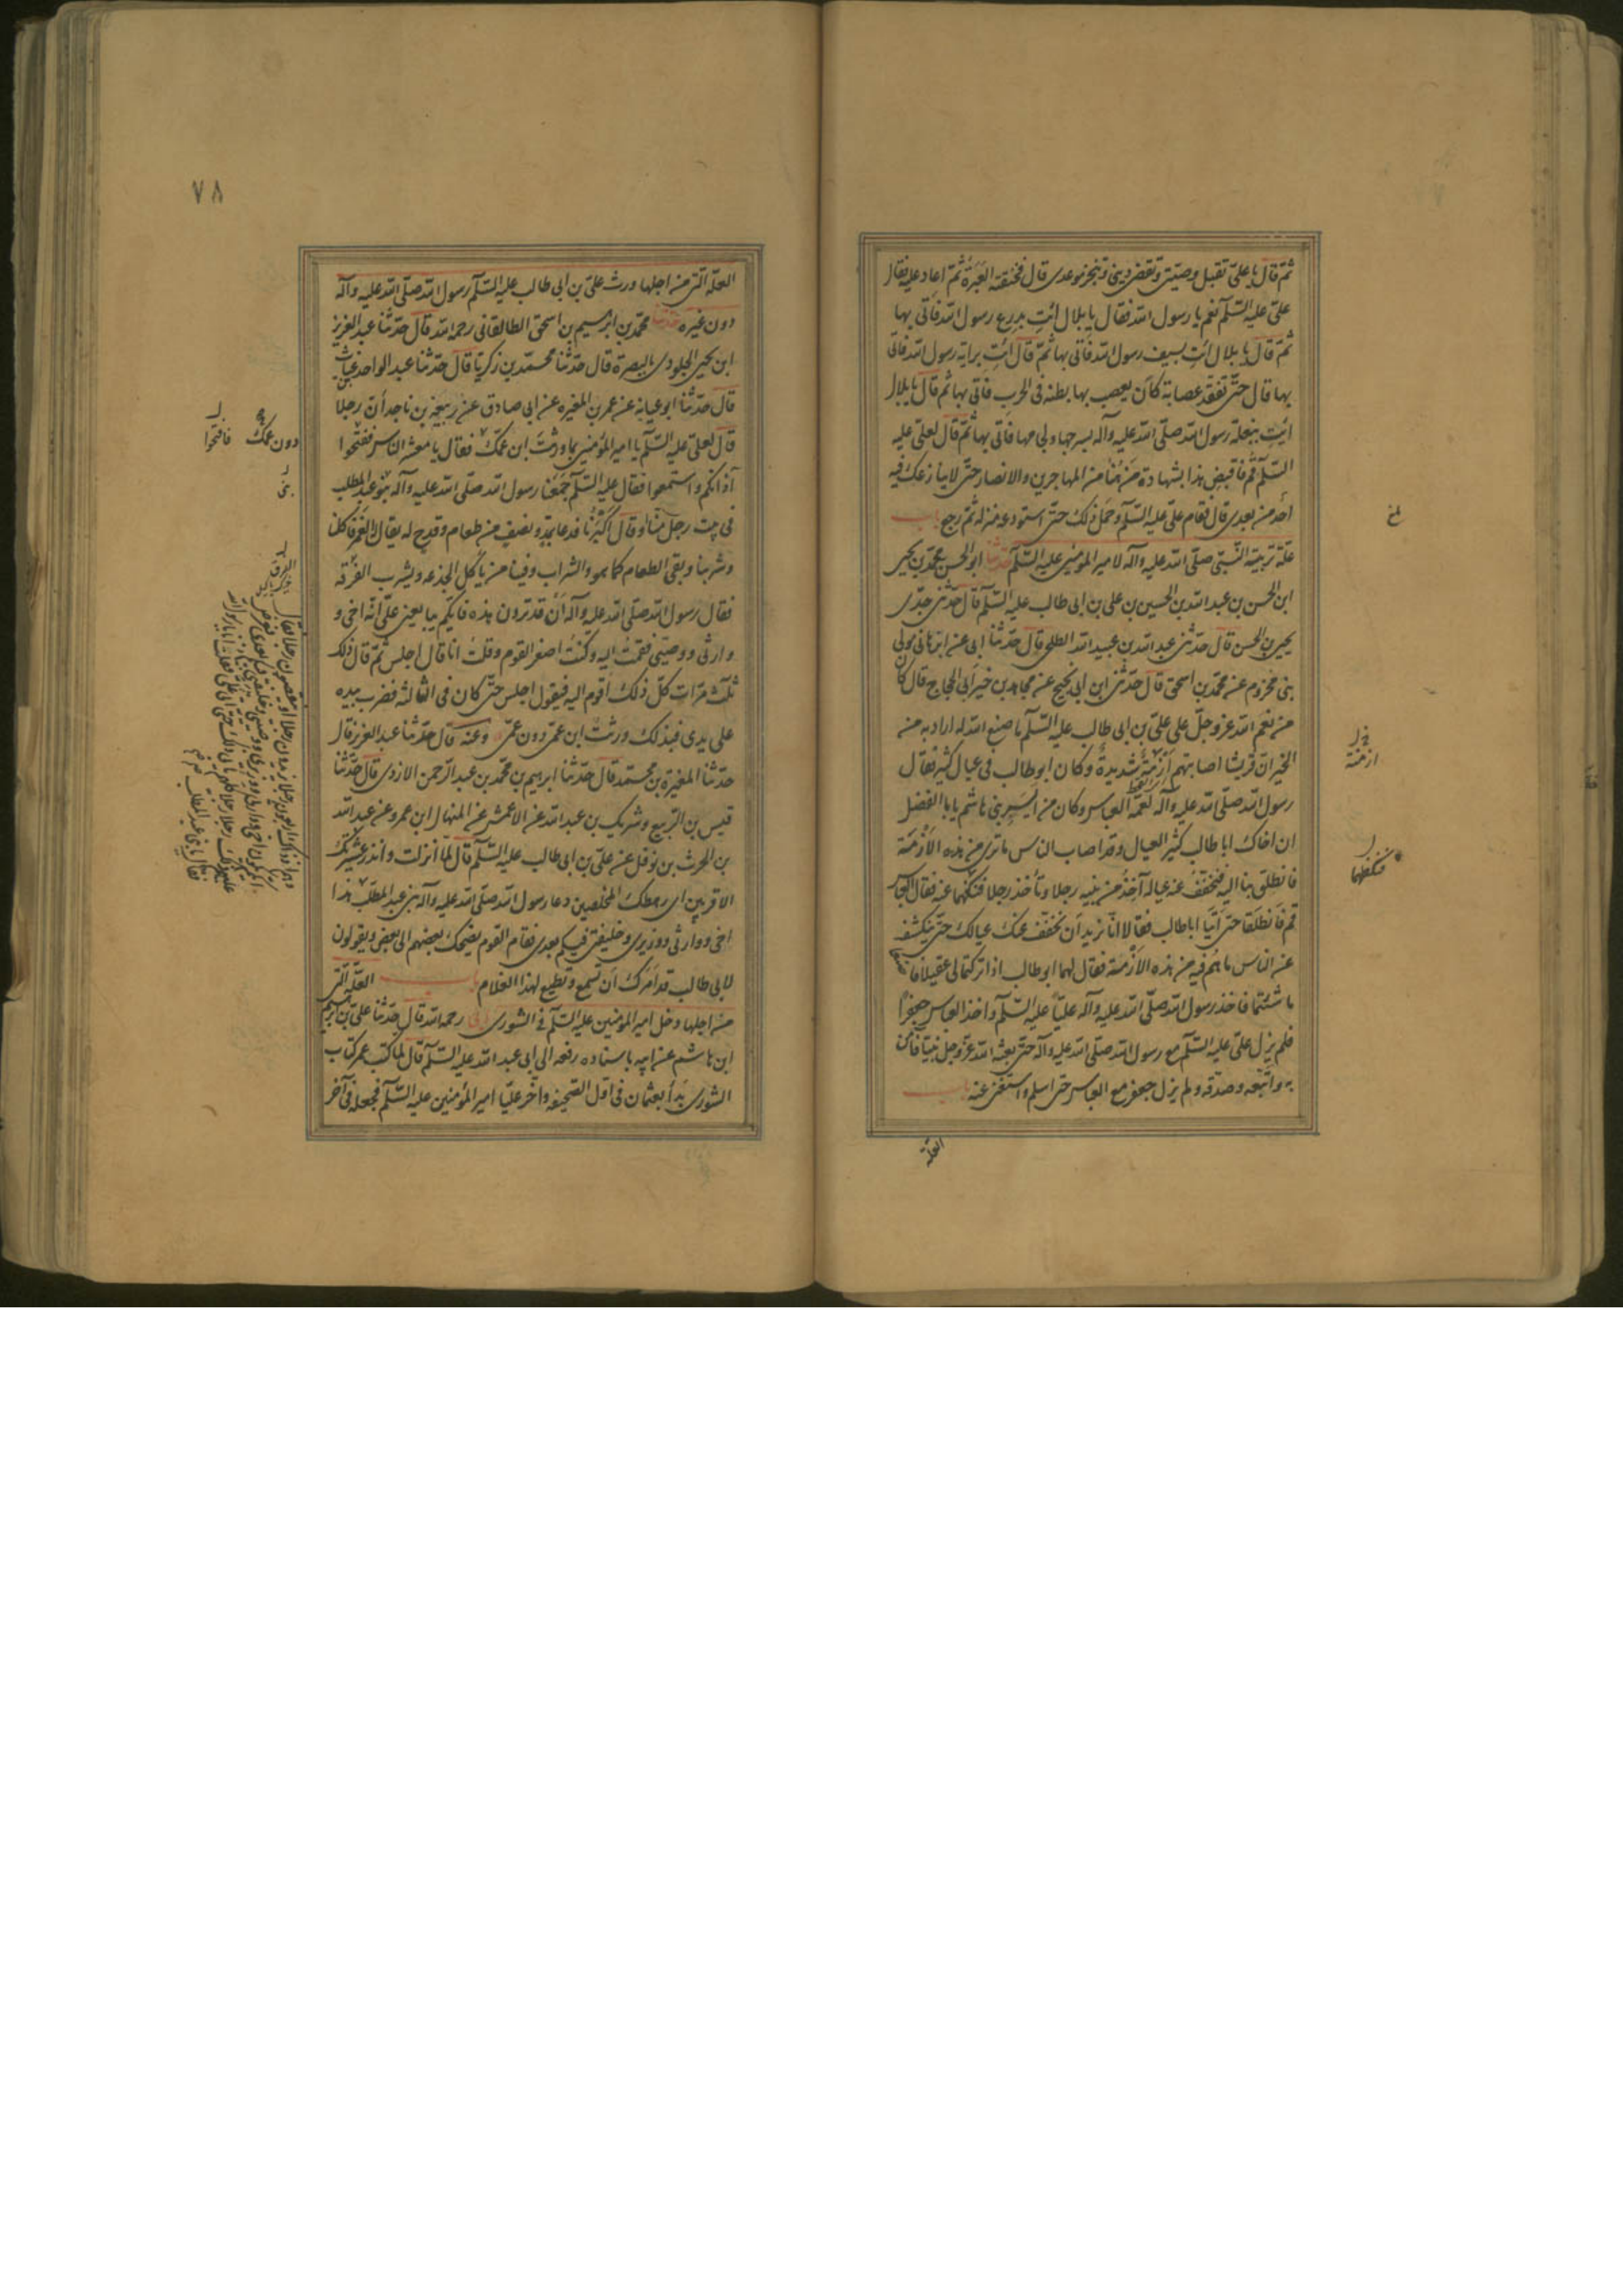 ثم قال يا علي تقبل وصيتي وتقضي ديني وتنجز موعدي قال فخنقته العبرة ثم اعاد عليه فقال
علي عليه السلم نعم يا رسول الله فقال يا بلال ائت بدرع رسول الله فاتى بها
ثم قال يا بلال ائت بسيف رسول الله فاتى بها ثم قال ائت براية رسول الله فاتى
بها قال حتى تفقد عصابة كان يعصب بها بطنه في الحرب فاتى بها ثم قال يا بلال
ائت ببغلة رسول الله صلى الله عليه وآله بسرجها ولجامها فاتى بها ثم قال لعلي عليه
السلم قم فاقبض هذا بشهادة من هنا من المهاجرين والانصار حتى لا ينازعك فيه
احد من بعدي قال فقام علي عليه السلم وحمل ذلك حتى استودعه منزله ثم رجع باب
علة تربية النبي صلى الله عليه وآله لامير المؤمنين عليه السلم حدثنا ابو الحسن محمد بن يحيى
ابن الحسن بن عبد الله بن الحسين بن علي بن ابي طالب عليه السلم قال حدثني جدي
يحيى بن الحسن قال حدثني عبد الله بن عبيد الله الطلحي قال حدثنا ابي عن ابن هاني مولى
بني مخزوم عن محمد بن اسحق قال حدثني ابن ابي نجيح عن مجاهد بن خير ابي الحجاج قال كان
من نعم الله عز وجل على علي بن ابي طالب عليه السلم ما صنع الله له اراد به من
الخير ان قريشا اصابتهم ازمة شديدة وكان ابو طالب في عيال كثير فقال
رسول الله صلى الله عليه وآله لعمه العباس وكان من ايسر بني هاشم يا با الفضل
ان اخاك ابا طالب كثير العيال وقد اصاب الناس ما ترى من هذه الازمة
فانطلق بنا اليه فنخفف عنه عياله آخذ من بنيه رجلا وتأخذ رجلا فنكفهما عنه فقال العباس
قم فانطلقا حتى اتيا ابا طالب فقالا انا نريد ان نخفف عنك عيالك حتى ينكشف
عن الناس ما هم فيه من هذه الازمة فقال لهما ابو طالب اذا تركتما لي عقيلا فاصنعا
ما شئتما فاخذ رسول الله صلى الله عليه وآله عليا عليه السلم واخذ العباس جعفرا
فلم يزل علي عليه السلم مع رسول الله صلى الله عليه وآله حتى بعثه الله عز وجل نبيا فآمن
به واتبعه وصدقه ولم يزل جعفر مع العباس حتى اسلم واستغنى عنه باب
العلة
ازمنة
فنكفلهما
٧٨
العلة التي من اجلها ورث علي بن ابي طالب عليه السلم رسول الله صلى الله عليه وآله
دون غيره حدثنا محمد بن ابرهيم بن اسحق الطالقاني رحمه الله قال حدثنا عبد العزيز
ابن يحيى الجلودي بالبصرة قال حدثنا محمد بن زكريا قال حدثنا عبد الواحد بن غياث
قال حدثنا ابو عباية عن عمر بن المغيره عن ابي صادق عن ربيعة بن ناجد أن رجلا
قال لعلي عليه السلم يا امير المؤمنين بما ورثت ابن عمك فقال يا معشر الناس ففتحوا
آذانكم واستمعوا فقال عليه السلم جمعنا رسول الله صلى الله عليه وآله بنو عبد المطلب
في بيت رجل منا او قال اكبرنا فدعا بمد ونصف من طعام وقدح له يقال له الغمر فاكلنا
وشربنا وبقي الطعام كما هو والشراب وفينا من ياكل الجذعه ويشرب الفرقه
فقال رسول الله صلى الله عليه وآله ان قد ترون هذه فايكم يبايعني على انه اخي و
وارثي ووصيي فقمت اليه وكنت اصغر القوم وقلت انا قال اجلس ثم قال ذلك
ثلث مرات كل ذلك اقوم اليه فيقول اجلس حتى كان في الثالثة فضرب بيده
على يدي فبذلك ورثت ابن عمي دون عمي وعنه قال حدثنا عبد العزيز قال
حدثنا المغيرة بن محمد قال حدثنا ابرهيم بن محمد بن عبد الرحمن الازدي قال حدثنا
قيس بن الربيع وشريك بن عبد الله عن الاعمش عن المنهال ابن عمرو عن عبد الله
بن الحرث بن نوفل عن علي بن ابي طالب عليه السلم قال لما انزلت وانذر عشيرتك
الاقربين اي رهطك المخلصين دعا رسول الله صلى الله عليه وآله بني عبد المطلب هذا
اخي ووارثي ووزيري وخليفتي فيكم بعدي فقام القوم يضحك بعضهم الى بعض ويقولون
لابي طالب قد امرك ان تسمع وتطيع لهذا الغلام باب العلة التي
من اجلها دخل امير المؤمنين عليه السلم في الشورى ابي رحمه الله قال حدثنا علي بن ابرهيم
ابن هاشم عن ابيه باسناده رفعه الى ابي عبد الله عليه السلم قال لما كتب عمر كتاب
الشورى بدأ بعثمان في اول الصحيفه واخر عليا امير المؤمنين عليه السلم فجعله في آخر
دون عمك
فافتحوا
بني
الفرق